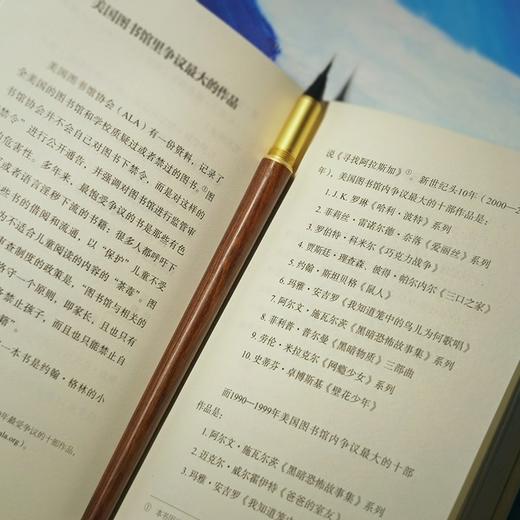 美国图书馆里争议最大的作品
美国图书馆协会（ALA）有一份资料，记录了
全美国的图书馆和学校质疑过或者禁过的图书。①图
书馆协会并不会自己对图书下禁令，而是对这样的
禁令”进行公开通告，并强调对图书馆进行监管审
危害性。多年来，最饱受争议的书是那些有色
或者语言淫秽下流的书籍；很多人都呼吁下
些书的借阅和流通，以“保护”儿童不受
为不适合儿童阅读的内容的“荼毒”。图
审查制度的政策是，“图书馆与相关的
恪守一个原则，即家长、且也只有
禁止孩子，而且也只能禁止自
籍”。
一本书是约翰·格林的小
年最受争议的十部作品，
ala.org）。
说《寻找阿拉斯加》①。新世纪头10年（2000—2
年），美国图书馆内争议最大的十部作品是：
1. J.K. 罗琳《哈利·波特》系列
2. 菲莉丝·雷诺尔德·奈洛《爱丽丝》系列
3. 罗伯特·科米尔《巧克力战争》
4. 贾斯廷·理查森、彼得·帕尔内尔《三口之家》
5. 约翰·斯坦贝格《鼠人》
6. 玛雅·安吉罗《我知道笼中的鸟儿为何歌唱》
7. 阿尔文·施瓦尔茨《黑暗恐怖故事集》系列
8. 菲利普·普尔曼《黑暗物质》三部曲
9. 劳伦·米拉克尔《网瘾少女》系列
10. 史蒂芬·卓博斯基《壁花少年》
而1990—1999年美国图书馆内争议最大的十部
作品是：
1. 阿尔文·施瓦尔茨《黑暗恐怖故事集》系列
2. 迈克尔·威尔霍伊特《爸爸的室友》
3. 玛雅·安吉罗《我知道笼中的
① 本书